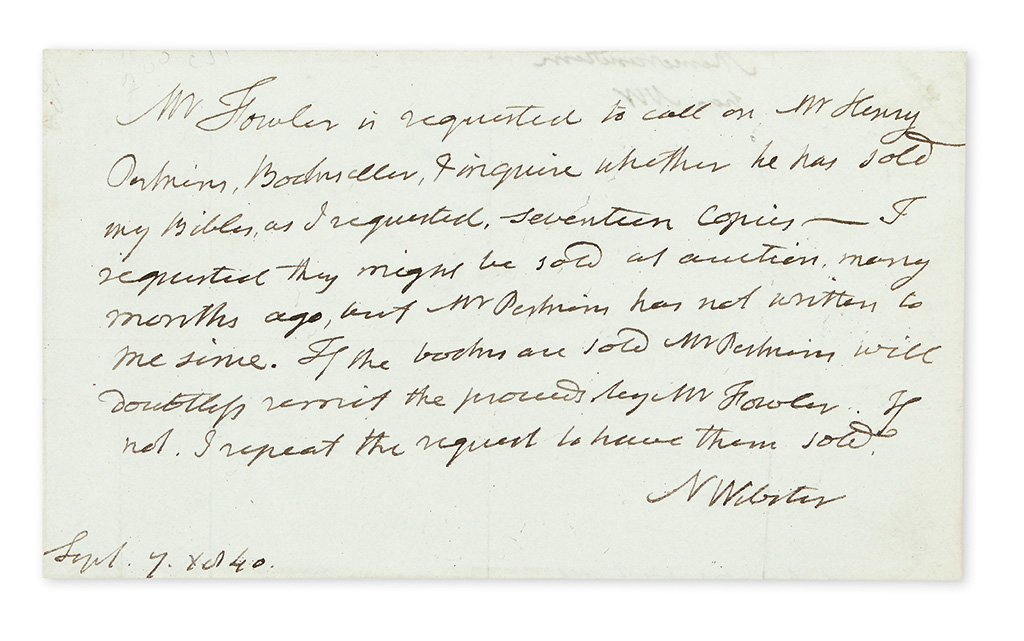 Mr Fowler is requested to call on Mr Henry
Perkins, Bookseller, & inquire whether he has sold
my Bibles, as I requested, seventeen copies — I
requested they might be sold at auction, many
months ago, but Mr Perkins has not written to
me since. If the books are sold Mr Perkins will
doubtless remit the proceeds by Mr Fowler. If
not. I repeat the request to have them sold.
N Webster
Sept. 7. 1840.
Memorandum